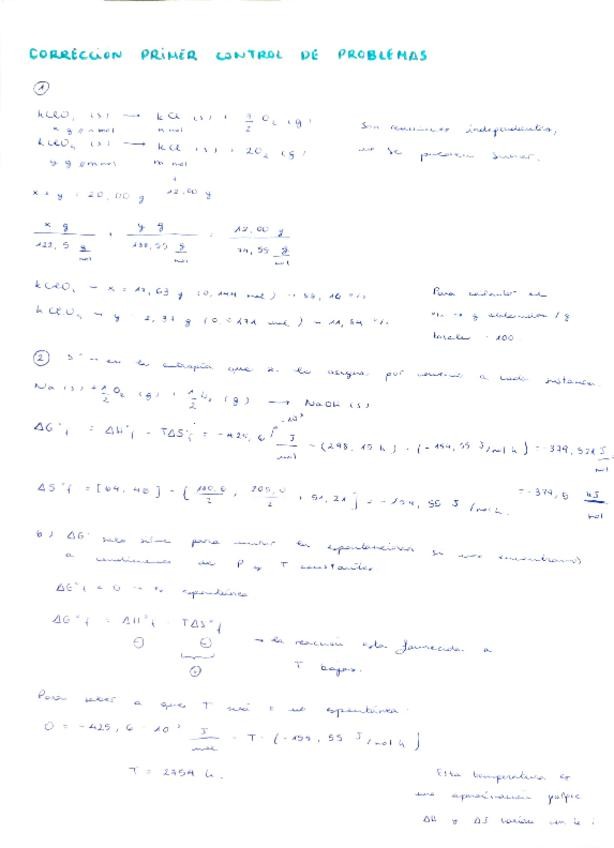 CORRECCION PRIMER CONTROL DE PROBLEMAS
1
KClO₃ (s) → KCl (s) + 3/2 O₂ (g)
x g n mol n mol
Son reacciones independientes,
KClO₄ (s) → KCl (s) + 2O₂ (g)
y g m mol m mol
no se pueden sumar.
x + y = 20,00 g 12,00 g
x g / 122,5 g/mol + y g / 138,55 g/mol = 12,00 g / 74,55 g/mol
KClO₃ → x = 17,63 g (0,144 mol) → 88,16 %
KClO₄ → y = 2,37 g (0,0171 mol) → 11,84 %
Para calcular el
% → g / g
totales · 100
2 S° → es la entropía que se le asigna por convenio a cada sustancia.
Na (s) + 1/2 O₂ (g) + 1/2 H₂ (g) → NaOH (s)
ΔG°f = ΔH°f - TΔS°f = -425,6 · 10³ J/mol - (298,15 K) · (-154,55 J/mol K) = -379,521 J/mol
= -379,5 kJ/mol
ΔS°f = [64,46] - [130,0/2 + 205,0/2 + 51,21] = -154,55 J/mol K.
b) ΔG solo sirve para la espontaneidad si nos encontramos
a condiciones de P y T constantes
ΔG°f < 0 → es espontánea
ΔG°f = ΔH°f - TΔS°f
⊖ ⊖
⊕
→ la reacción esta favorecida a
T bajas.
Para saber a que T será o no espontánea:
0 = -425,6 · 10³ J/mol - T · (-154,55 J/mol K)
T = 2754 K.
Esta temperatura es
una aproximación
ΔH y ΔS varían con la